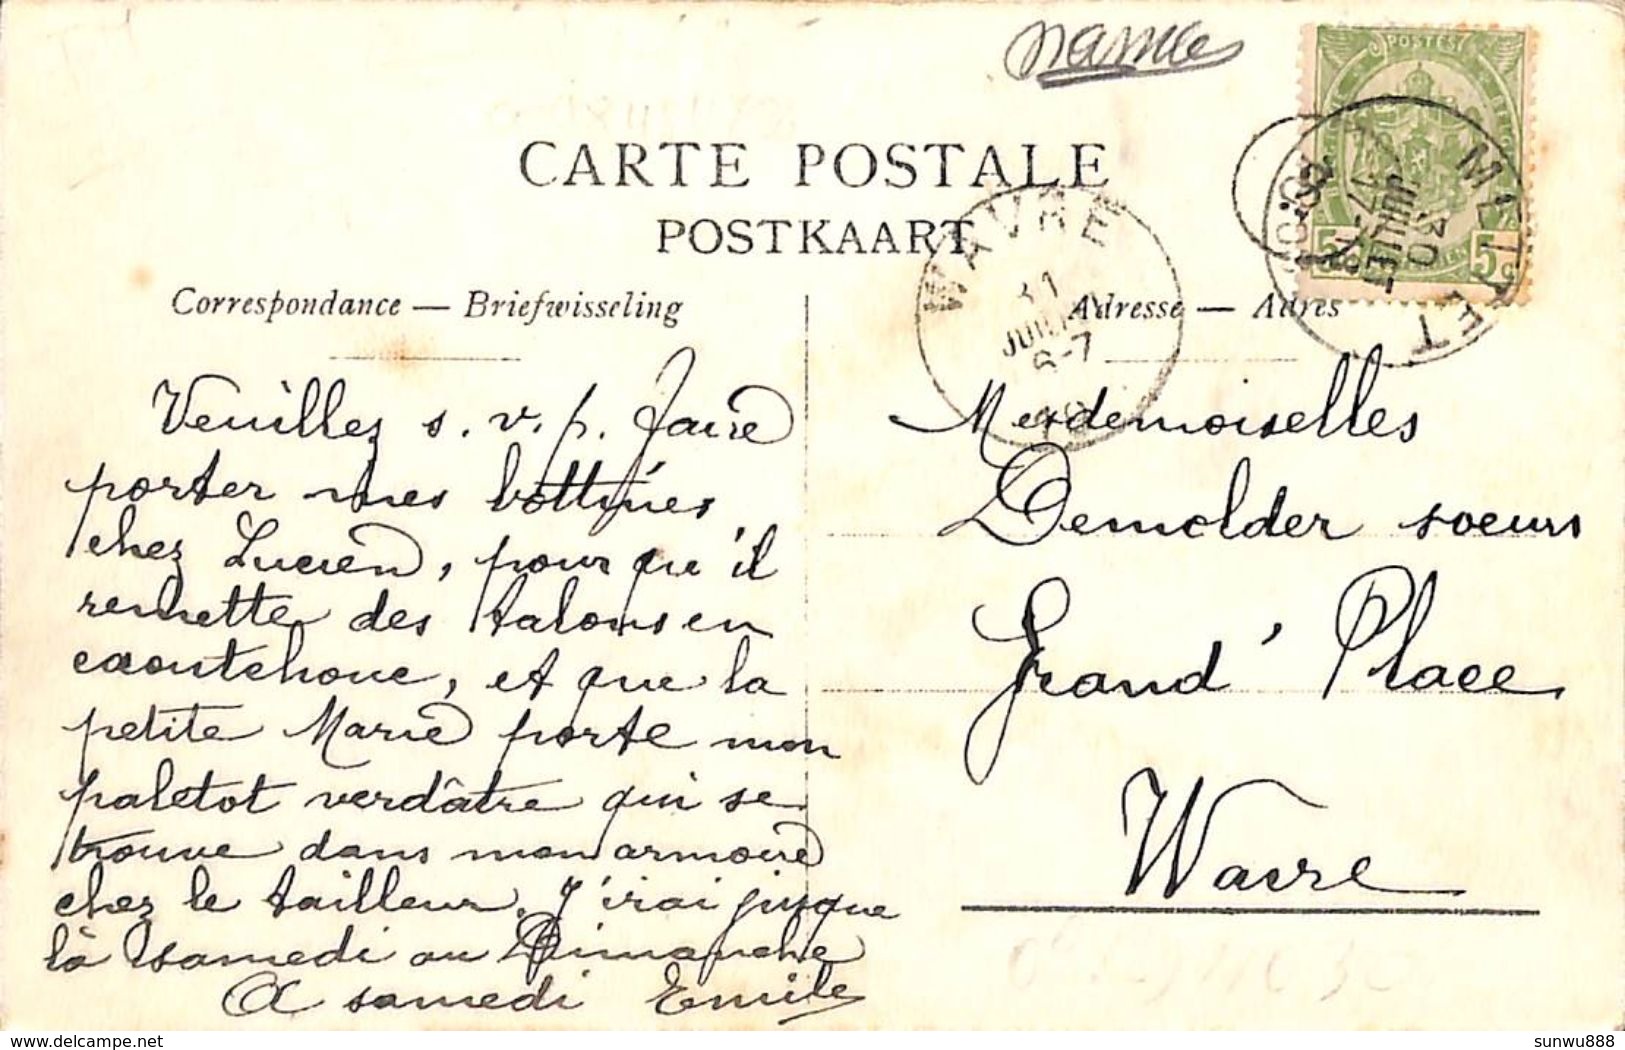 Namur
POSTES
5 5c
METTET
30
JUILLET
7-8
1908
CARTE POSTALE
POSTKAART
WAVRE
31
JUILLET
6-7
Correspondance — Briefwisseling
Adresse — Adres
Veuillez s. v. p. faire
porter mes bottines
chez Lucien, pour qu'il
remette des talons en
caoutchouc, et que la
petite Marie porte mon
paletot verdâtre qui se
trouve dans mon armoire
chez le tailleur. J'irai jusque
là samedi ou Dimanche
A samedi Emile
Mesdemoiselles
Demolder soeurs
Grand' Place
Wavre
delcampe.net
sunwu888